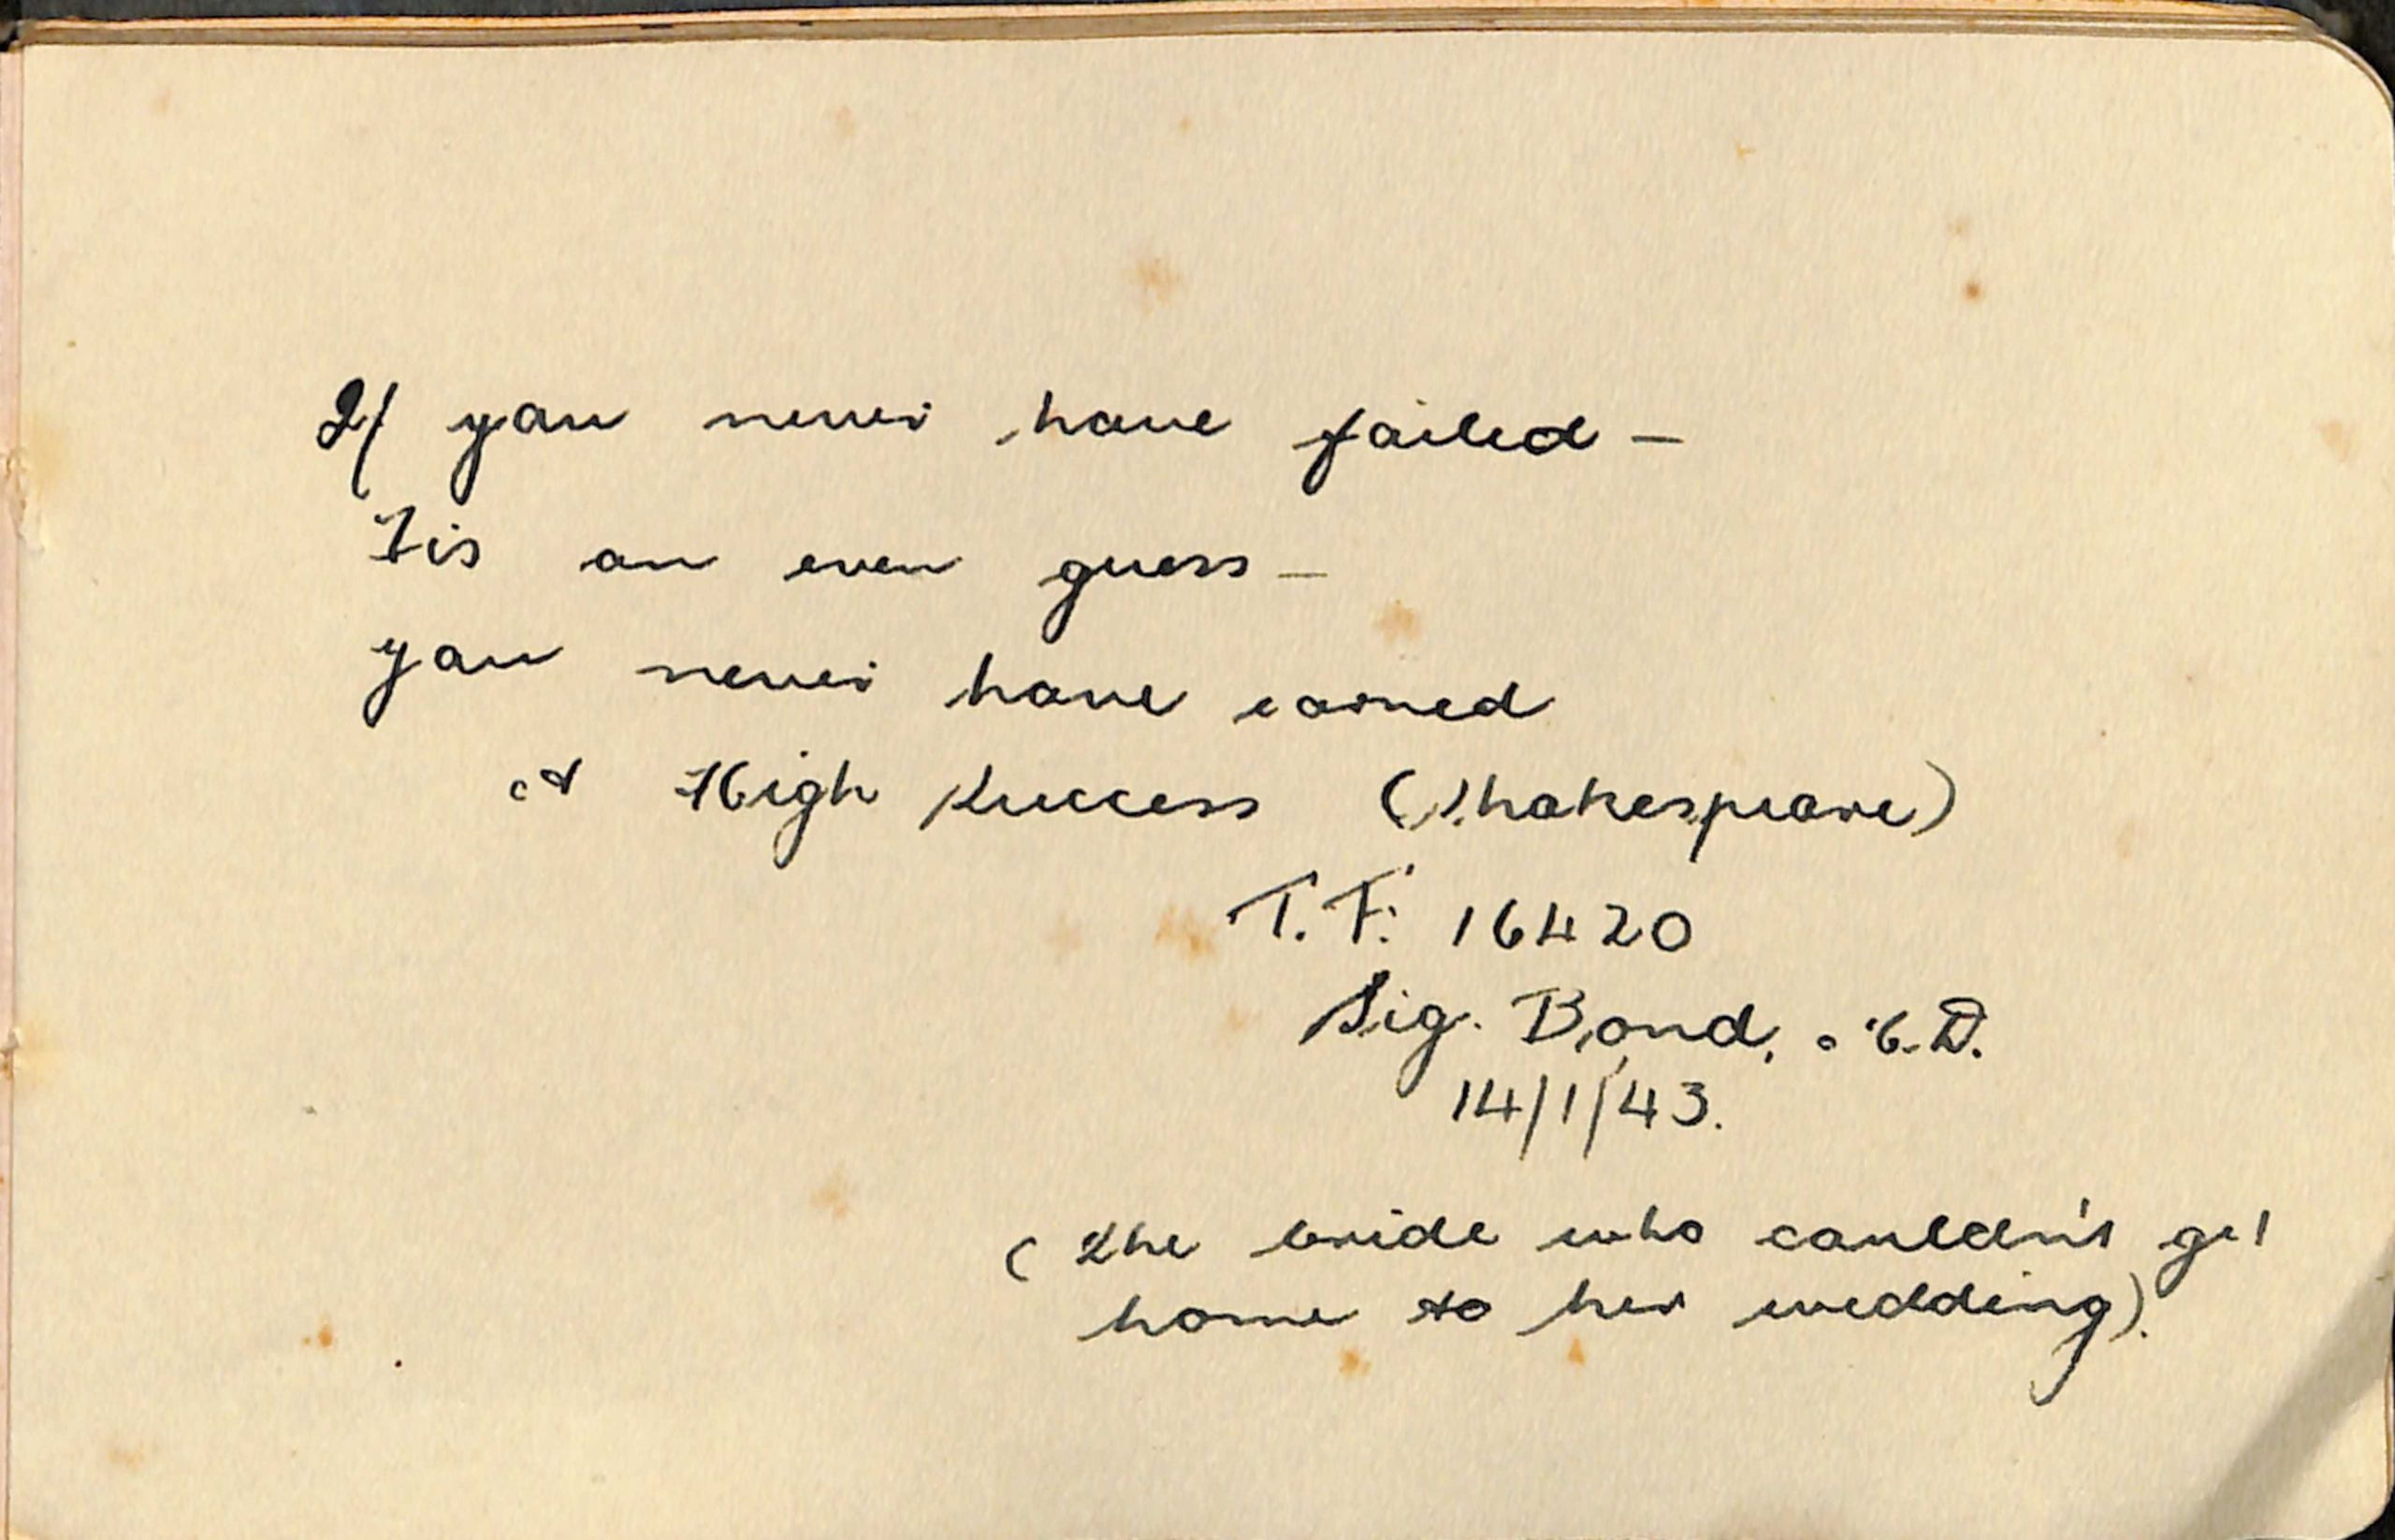 If you never have failed —
Tis an even guess —
you never have earned
A High Success (Shakespeare)
T.F. 16420
Sig. Bond.
14/1/43.
(The bride who couldn't get
home to her wedding).